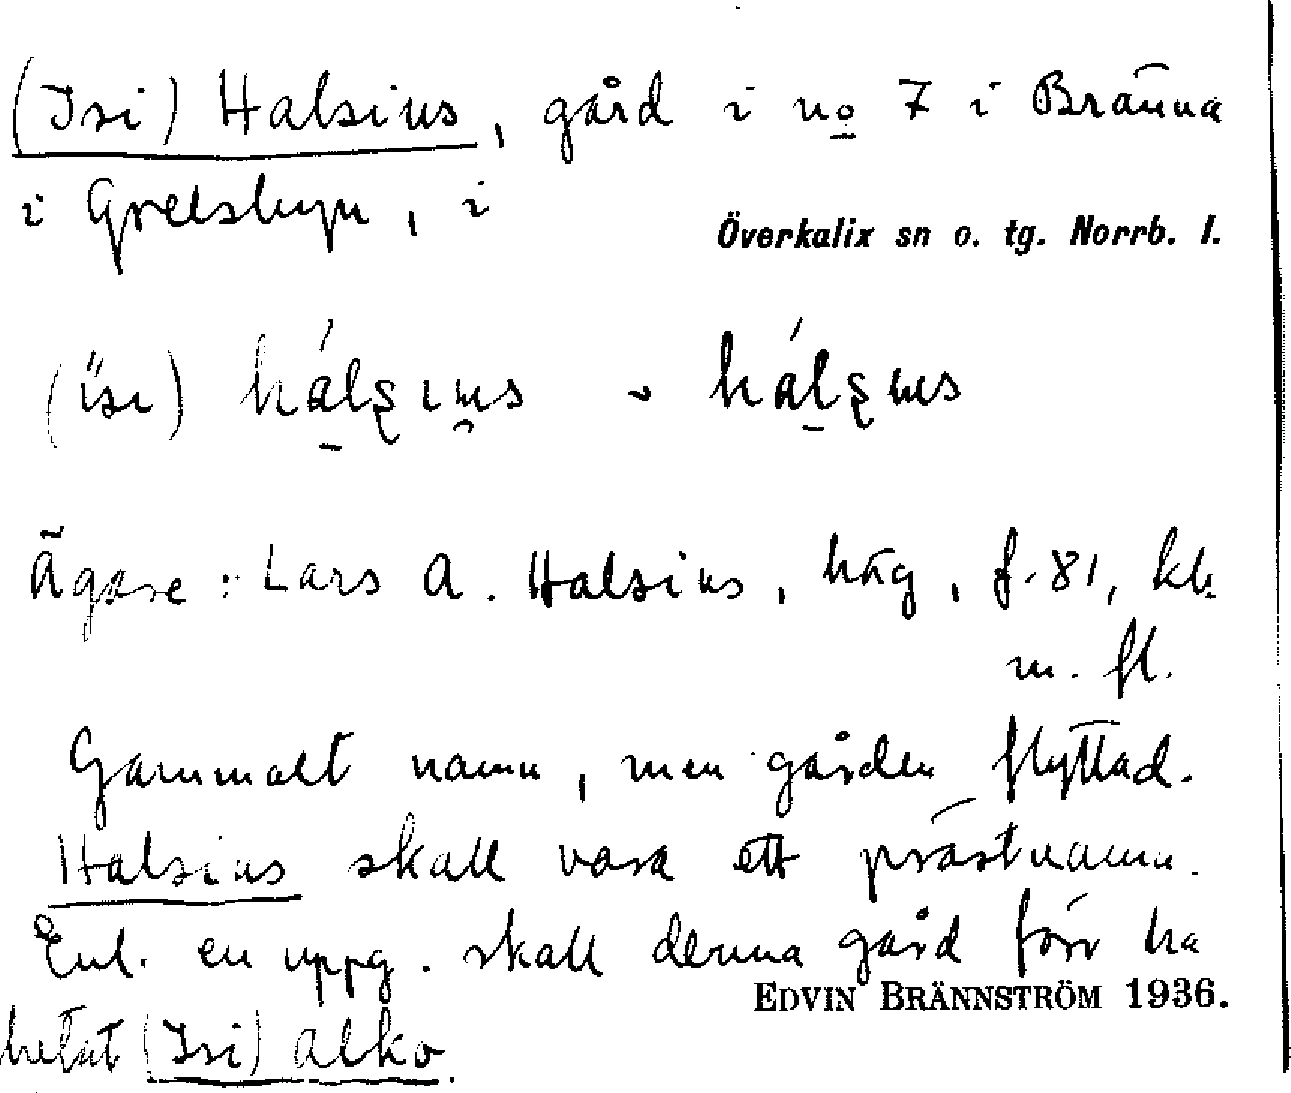 (Isi) Halsius, gård i no 7 i Bränna
i Grelsbyn, i
Överkalix sn o. tg. Norrb. l.
(ɩsɩ) hálsɩus ~ hálsɩus
Ägare: Lars A. Halsius, häg, f. 81, kb.
m. fl.
Gammalt namn, men gården flyttad.
Halsius skall vara ett prästnamn.
Enl. en uppg. skall denna gård förr ha
EDVIN BRÄNNSTRÖM 1936.
hetat (Isi) alko.